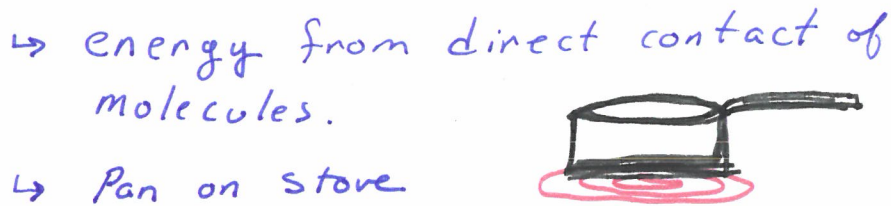 ↳ energy from direct contact of
molecules.
↳ Pan on stove